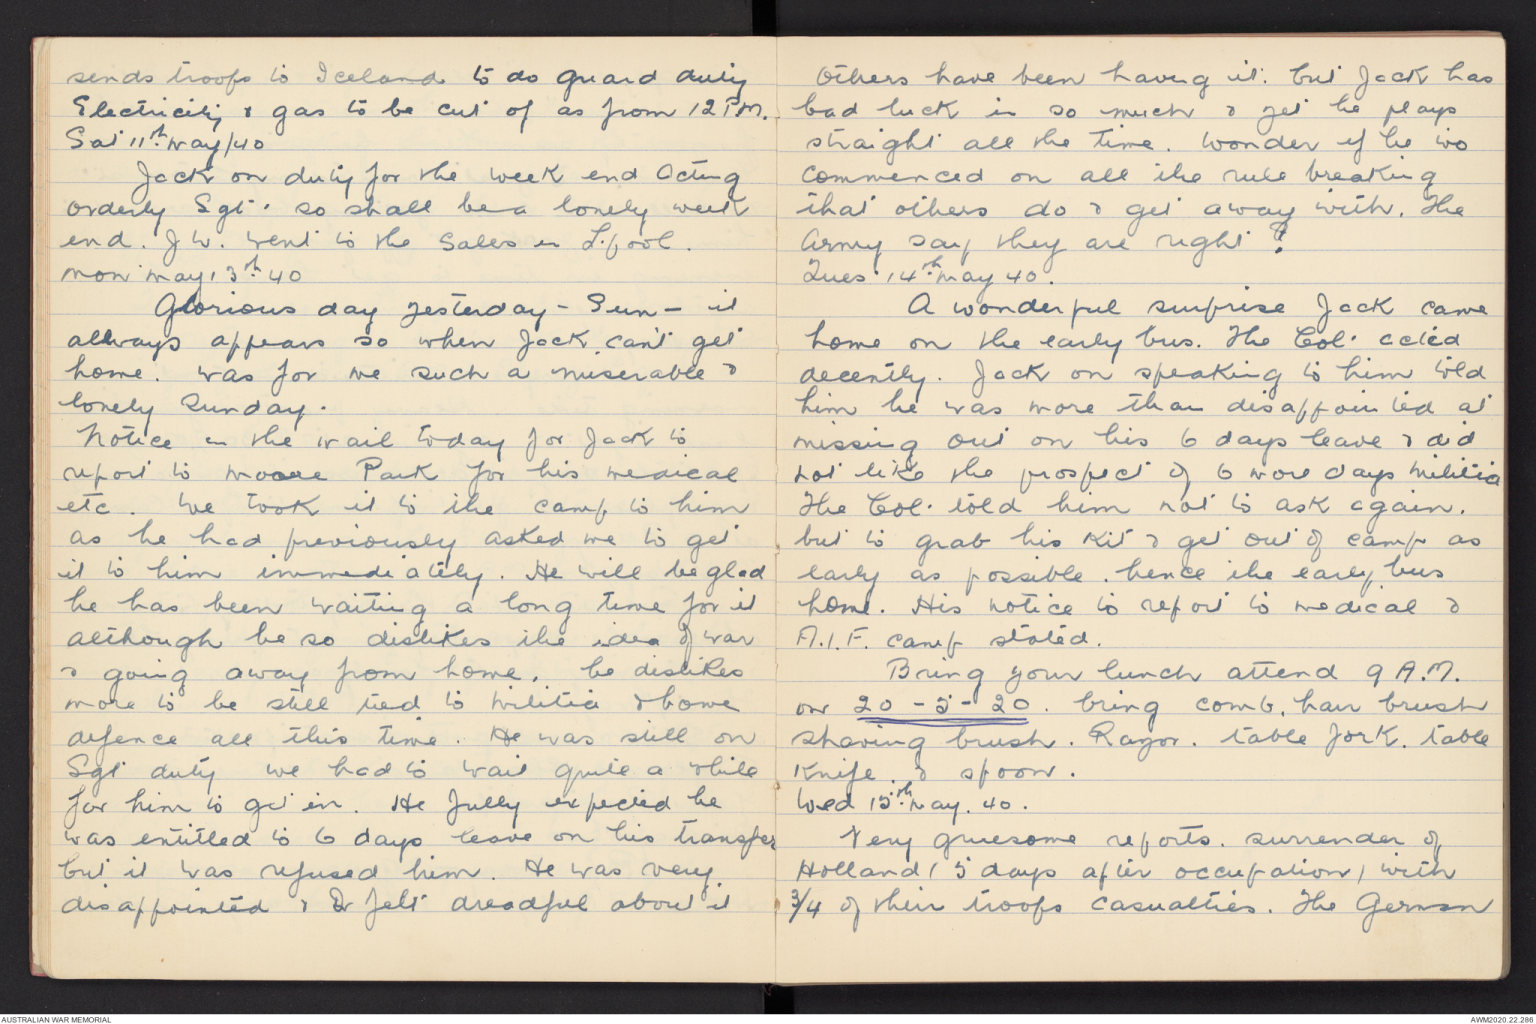 sends troops to Iceland to do guard duty
Electricity & gas to be cut of as from 12 P.M.
Sat 11th May/40
Jack on duty for the week end Acting
orderly Sgt. so shall be a lonely week
end. J W. went to the Sales in L.pool.
Mon May 13th 40
Glorious day yesterday - Sun - it
allways appears so when Jack can't get
home. was for me such a miserable &
lonely Sunday.
Notice in the mail today for Jack to
report to Moore Park for his medical
etc. We took it to the camp to him
as he had previously asked me to get
it to him immediately. He will be glad
he has been waiting a long time for it
although he so dislikes the idea of war
& going away from home, he dislikes
more to be still tied to Militia & home
defence all this time. He was still on
Sgt duty we had to wait quite a while
for him to get in. He fully expected he
was entitled to 6 days leave on his transfer
but it was refused him. He was very
disappointed & I felt dreadful about it
Others have been having it. but Jack has
bad luck in so much & yet he plays
straight all the time. Wonder if he wo
commenced on all the rule breaking
that others do & get away with. The
Army say they are right?
Tues. 14th May 40.
A wonderful surprise Jack came
home on the early bus. The Col. acted
decently. Jack on speaking to him told
him he was more than disappointed at
missing out on his 6 days leave & did
not like the prospect of 6 more days Militia
The Col. told him not to ask again.
but to grab his kit & get out of camp as
early as possible. hence the early bus
home. His notice to report to medical &
A.I.F. camp stated.
Bring your lunch attend 9 A.M.
on 20 - 5 - 20. bring comb, hair brush
shaving brush. Razor. table fork. table
knife. & spoon.
Wed 15th May. 40.
Very gruesome reports. surrender of
Holland (5 days after occupation) with
3/4 of their troops casualties. The German
AUSTRALIAN WAR MEMORIAL
AWM2020.22.286